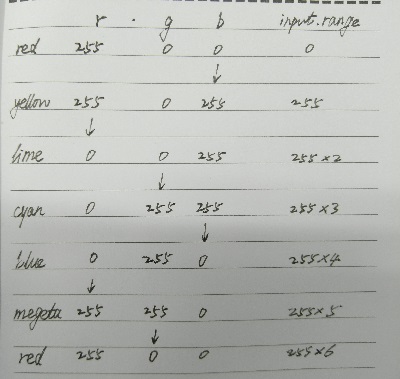 r . g b input.range
red 255 0 0 0
↓
yellow 255 0 255 255
↓
lime 0 0 255 255×2
↓
cyan 0 255 255 255×3
↓
blue 0 255 0 255×4
↓
megeta 255 255 0 255×5
↓
red 255 0 0 255×6